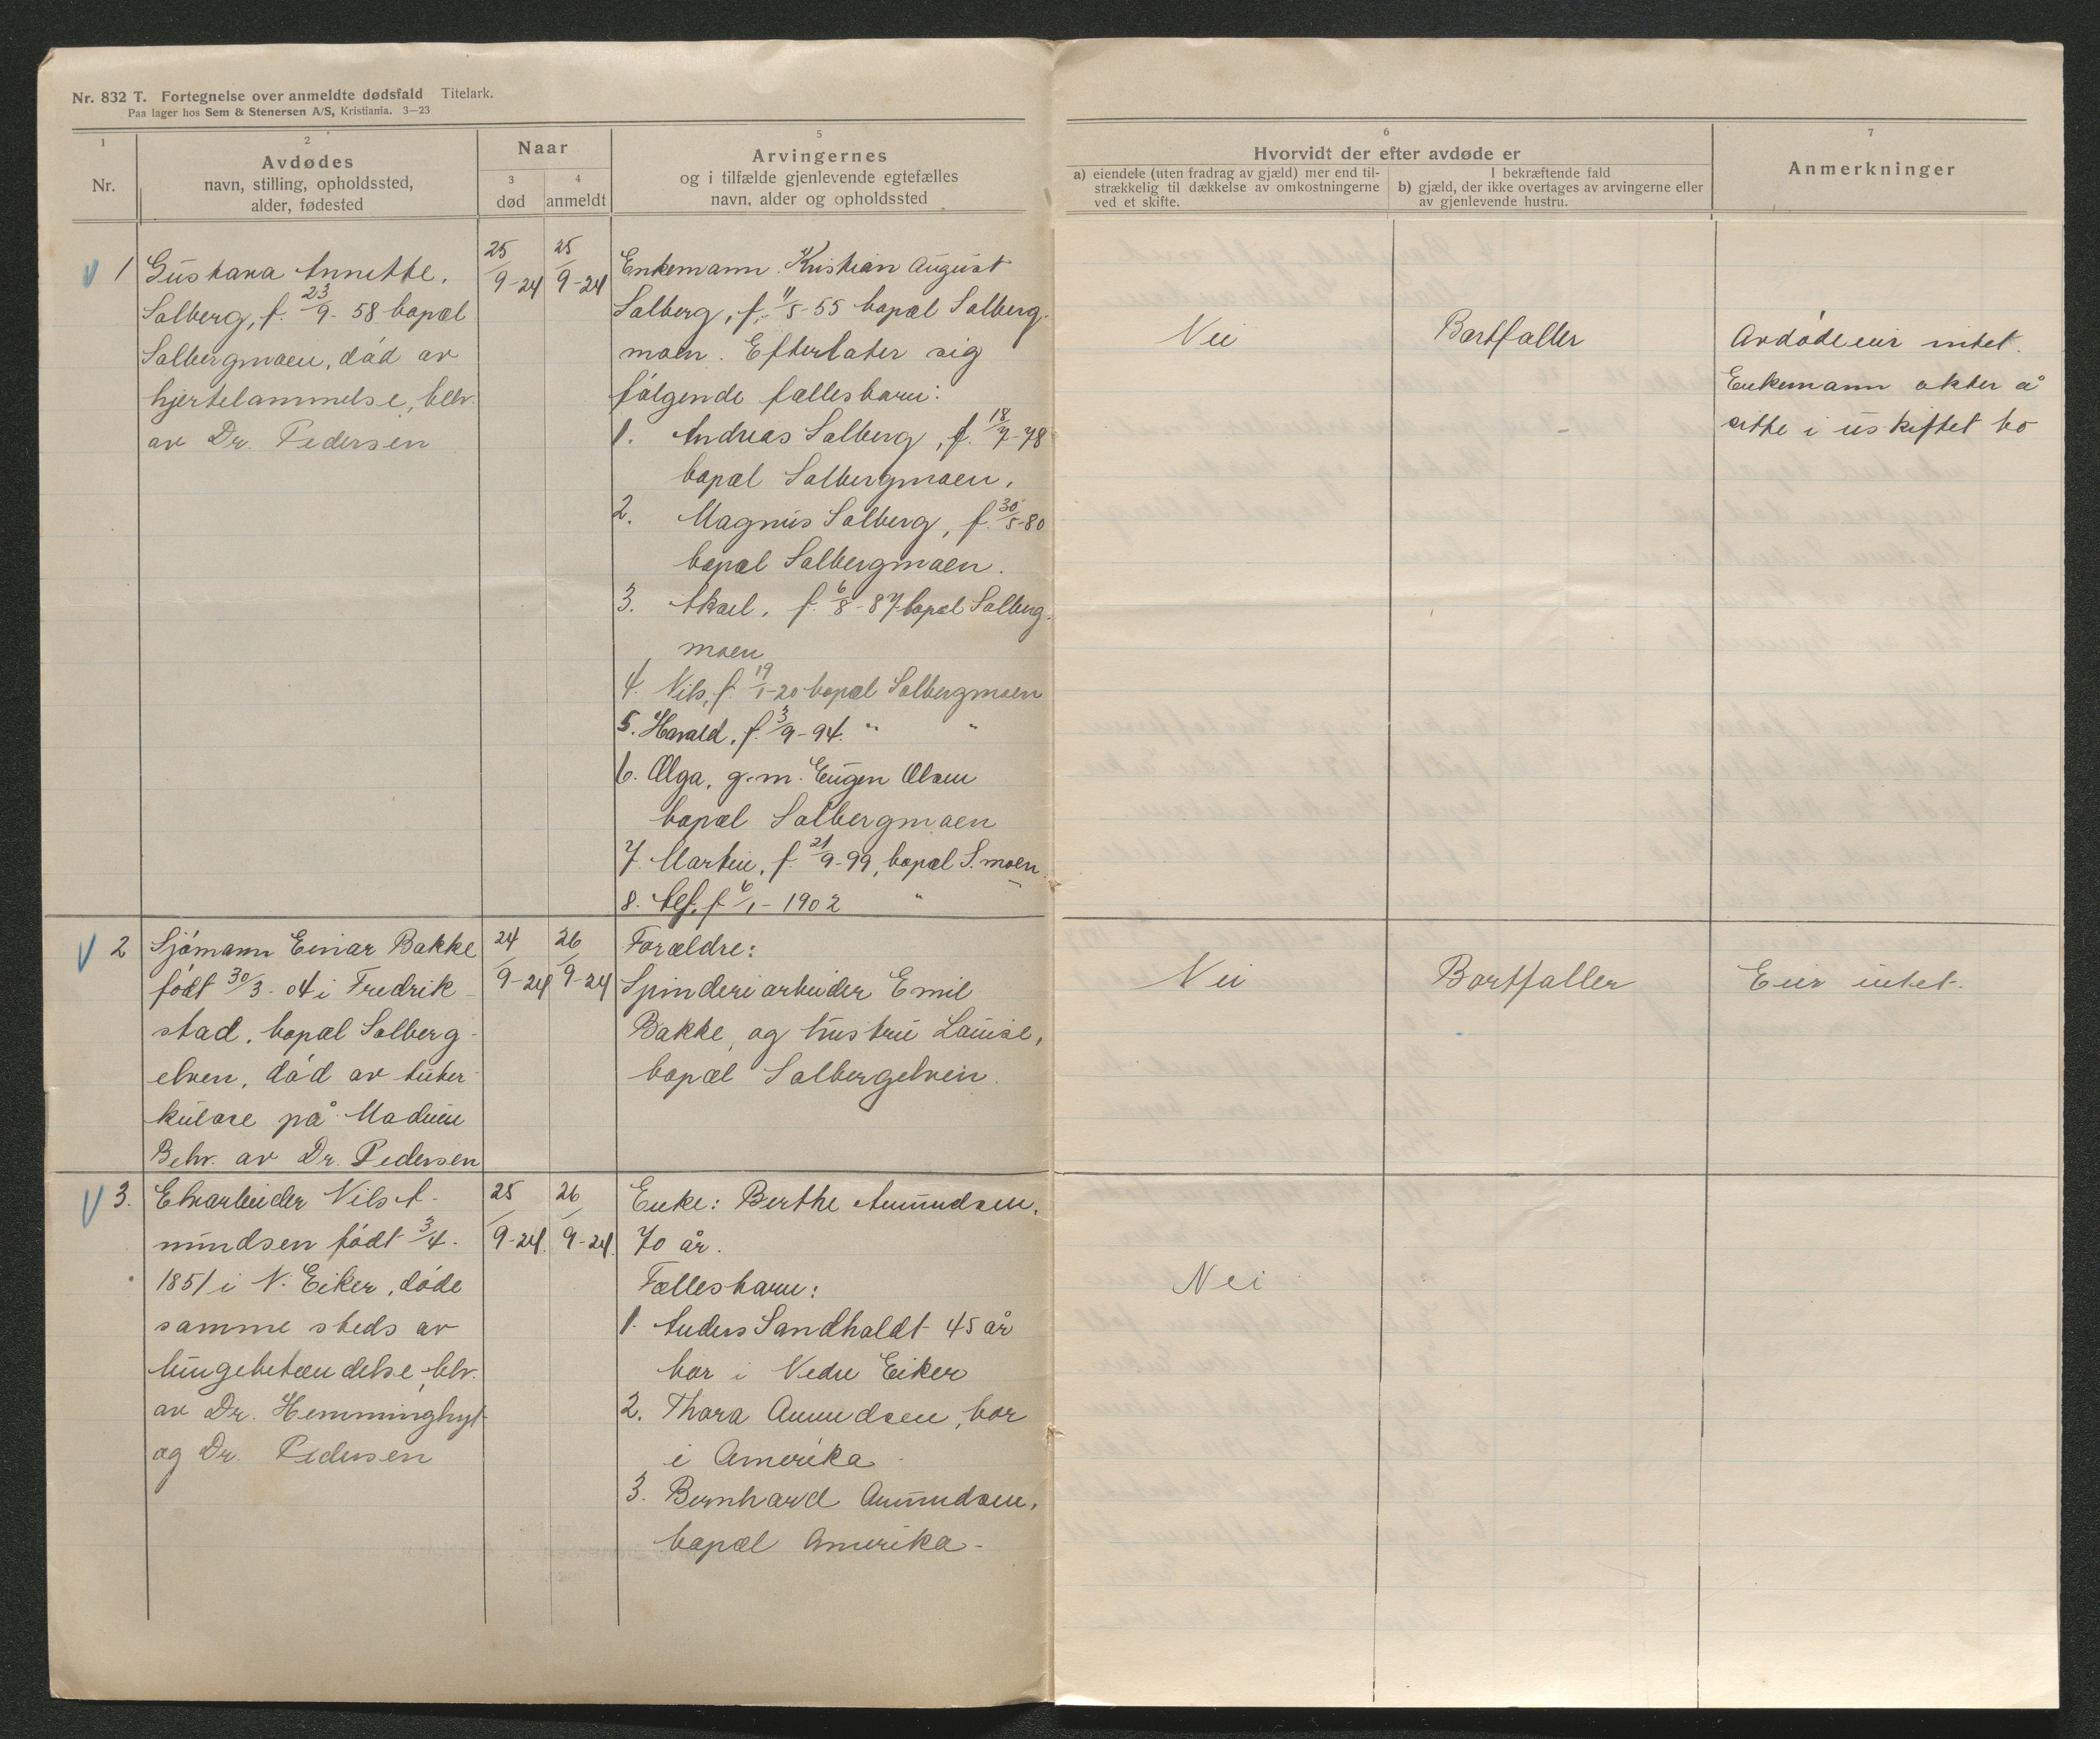 Nr. 832 T. Fortegnelse over anmeldte dødsfald Titelark.
Paa lager hos Sem & Stenersen A/S, Kristiania. 3—23
1
Nr.
2
Avdødes
navn, stilling, opholdssted,
alder, fødested
Naar
3
død
4
anmeldt
5
Arvingernes
og i tilfælde gjenlevende egtefælles
navn, alder og opholdssted
6
Hvorvidt der efter avdøde er
a) eiendele (uten fradrag av gjæld) mer end til-
strækkelig til dækkelse av omkostningerne
ved et skifte.
I bekræftende fald
b) gjæld, der ikke overtages av arvingerne eller
av gjenlevende hustru.
7
Anmerkninger
1
Gustava Annette,
Solberg, f. 23/9- 58 bopæl
Solbergmoen, død av
hjertelammelse, behr.
av Dr. Pedersen
25/9-24
25/9-24
Enkemann Kristian August
Solberg, f. 11/5-55 bopæl Solberg-
moen. Efterlater sig
følgende fællesbarn:
1. Andreas Solberg, f. 18/7-78
bopæl Solbergmoen,
2. Magnus Solberg, f. 30/5-80
bopæl Solbergmoen.
3. Aksel, f. 6/8-87 bopæl Solberg-
moen
4. Nils, f. 19/1-20 bopæl Solbergmoen
5. Harald, f. 3/9-94. " "
6. Olga, g.m. Eugen Olsen
bopæl Solbergmoen
7. Martin, f. 21/9-99, bopæl S.moen
8. f. 6/1-1902 "
Nei
Bortfaller
Avdøde eier intet.
Enkemann akter å
sitte i uskiftet bo
2
Sjømann Einar Bakke
født 30/3-04 i Fredrik-
stad, bopæl Solberg-
elven, død av tuber-
kulose på Modum
Behr. av Dr. Pedersen
24/9-24
26/9-24
Forældre:
Spinderiarbeider Emil
Bakke, og hustru Louise,
bopæl Solbergelven.
Nei
Bortfaller
Eier intet.
3.
Elvarbeider Nils A-
mundsen født 3/4-
1851 i N. Eiker, døde
samme steds av
lungebetændelse, behr.
av Dr. Hemminghyt
og Dr. Pedersen
25/9-24.
26/9-24.
Enke: Berthe Amundsen,
70 år.
Fællesbarn:
1. Anders Sandholdt 45 år
bor i Nedre Eiker
2. Thora Amundsen, bor
i Amerika
3. Bernhard Amundsen,
bopæl Amerika-
Nei